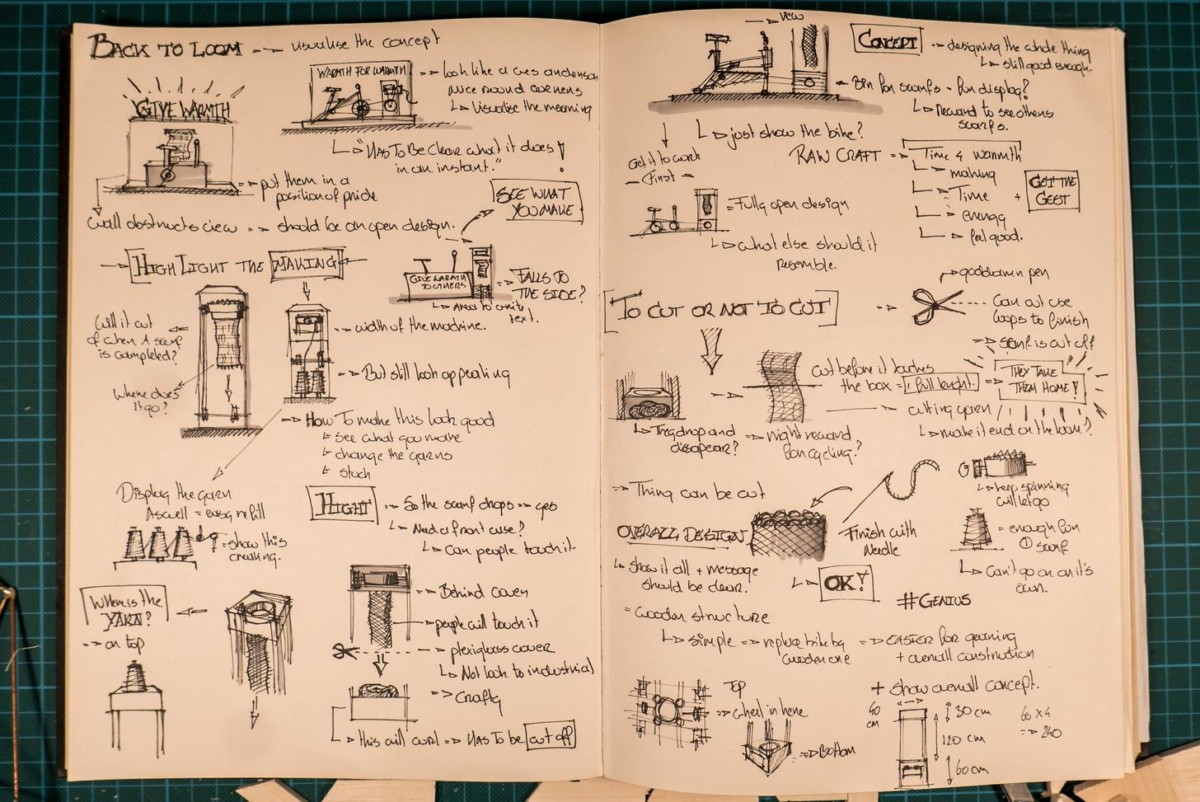 BACK TO LOOM --→ visualise the concept
GIVE WARMTH
WARMTH FOR WARMTH
--→ look like a wes anderson
nice round corners
↳ Visualise the meaning
↳ "HAS TO BE Clear what it does!
in an instant."
→ put them in a
position of pride
SEE WHAT
YOU MAKE
Wall obstructs view → should be an open design.
HIGHLIGHT THE MAKING
GIVE WARMTH
TO OTHERS
→ FALLS TO
THE SIDE?
↳ Area to omit
text.
Will it cut
of when 1 scarf
is completed?
Where does
it go?
--→ width of the machine.
--→ But still look appealing
--→ How To make this look good
↳ see what you make
↳ change the yarns
↳ stuck
Display the yarn
Aswell = easy refill
→ show this
creaking.
HIGHT
--→ So the scarf drops → yes
↳ Need a front case?
↳ Can people touch it.
WHERE IS THE
YARN?
--→ on top
--→ Behind cover
→ people will touch it
--→ plexiglass cover
↳ Not look to industrial
--> Crafty
↳ this will curl → HAS TO be cut off
--→ view
CONCEPT --→ designing the whole thing
↳ still good enough.
← Bin for scarfs - for display?
↳ Reward to see others
scarfs.
↳ just show the bike?
Get it to work
- First -
RAW CRAFT → Time & warmth
↳ making
↳ Time
↳ energy
↳ feel good.
+ GET THE
GEEST
= Fully open design
↳ what else should it
resemble.
TO CUT OR NOT TO CUT
goddamn pen
Can out use
loops to finish
--→ scarf is cut off
cut before it touches
the box = 1 full lenght. →
THEY TAKE
THEM HOME!
↳ They drop and
disapear?
→ might reward
for cycling?
cutting yarn
↳ make it end on the loom?
--→ Thing can be cut
↳ keep spinning
will let go
OVERALL DESIGN
Finish with
Needle
= enough for
① scarf
↳ show it all + message
should be clear.
↳ OK!
↳ Can't go on on it's
own.
#GENIUS
= wooden structure
↳ simple → replace bike by
wooden one
→ EASIER for gearing
+ overall construction
+ show overall concept.
Top
→ wheel in here
→ Bottom
40
cm
30 cm
120 cm
60 cm
60 x 4
→ 240